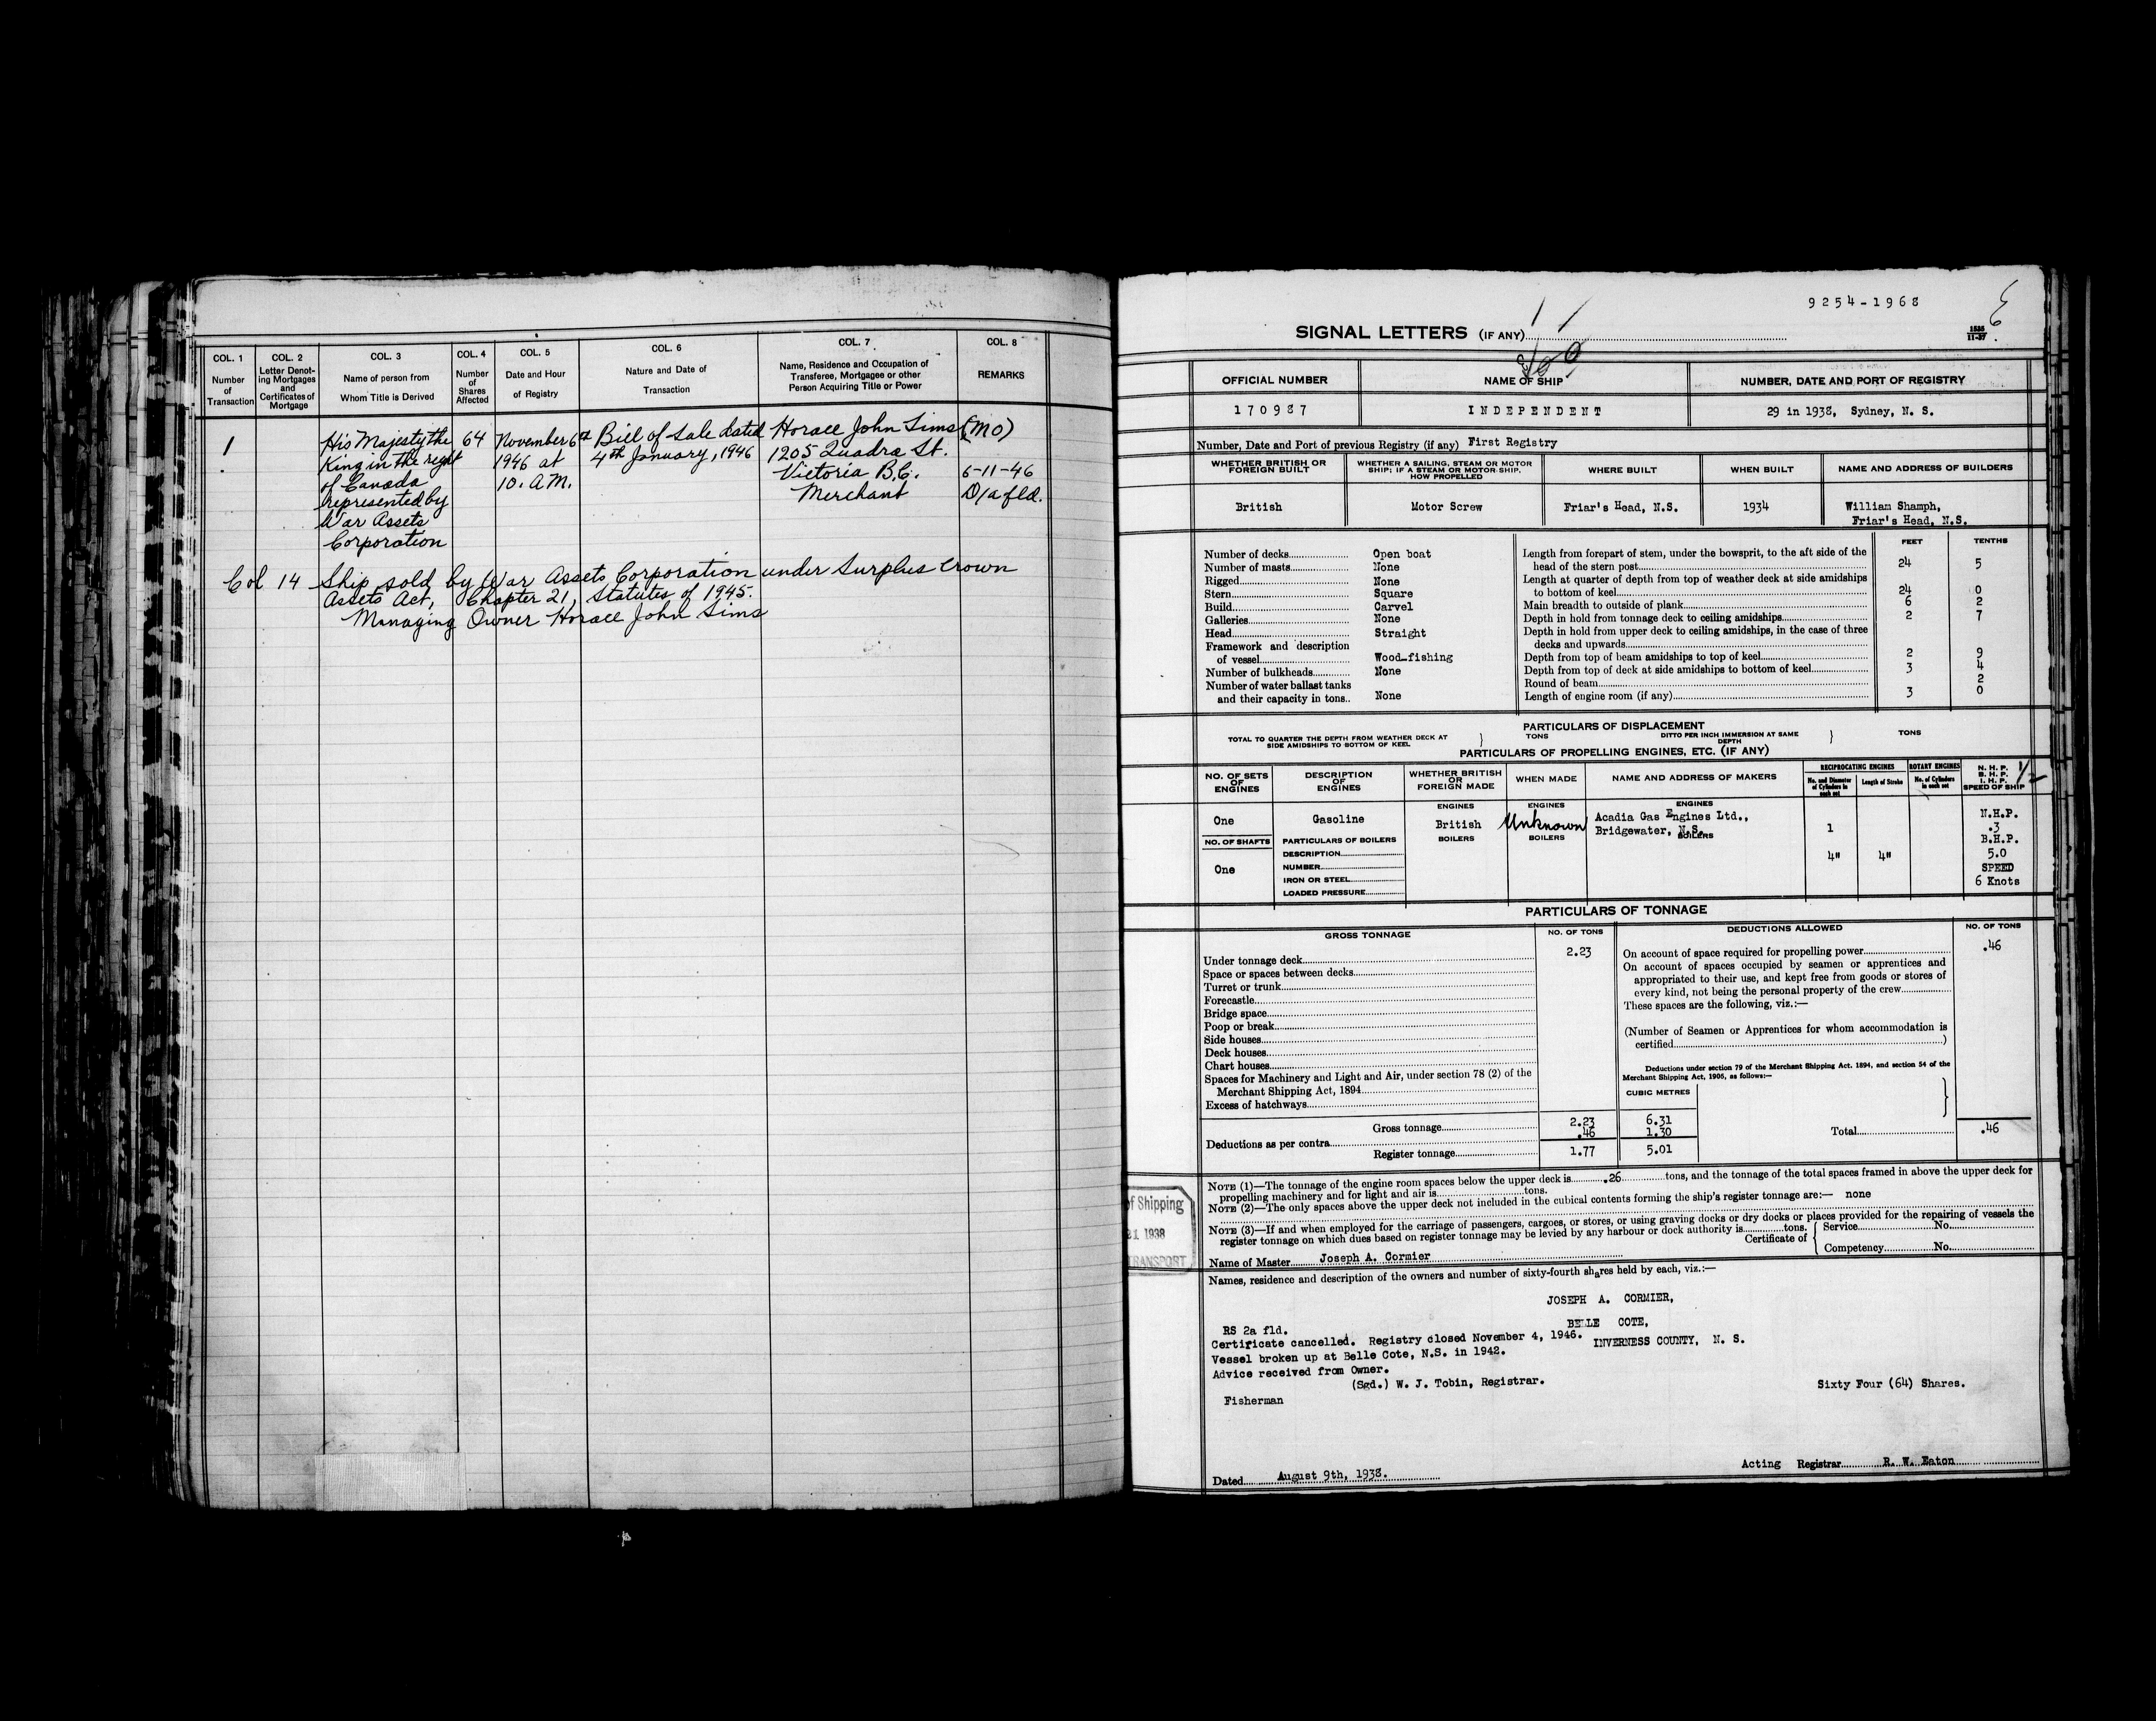 COL. 1
Number
of
Transaction
COL. 2
Letter Denot-
ing Mortgages
and
Certificates of
Mortgage
COL. 3
Name of person from
Whom Title is Derived
COL. 4
Number
of
Shares
Affected
COL. 5
Date and Hour
of Registry
COL. 6
Nature and Date of
Transaction
COL. 7
Name, Residence and Occupation of
Transferee, Mortgagee or other
Person Acquiring Title or Power
COL. 8
REMARKS
1
His Majesty the
King in the right
of Canada
represented by
War Assets
Corporation
64
November 6th
1946 at
10. A.M.
Bill of Sale dated
4th January, 1946
Horace John Sims
1205 Quadra St.
Victoria B.C.
Merchant
(MO)
6-11-46
D/a fld.
Col 14 Ship sold by War Assets Corporation under Surplus Crown
Assets Act, Chapter 21, Statutes of 1945.
Managing Owner Horace John Sims
9254-1968
SIGNAL LETTERS (IF ANY)
1535
11-37
OFFICIAL NUMBER
NAME OF SHIP
NUMBER, DATE AND PORT OF REGISTRY
170987
INDEPENDENT
29 in 1938, Sydney, N. S.
Number, Date and Port of previous Registry (if any) First Registry
WHETHER BRITISH OR
FOREIGN BUILT
WHETHER A SAILING, STEAM OR MOTOR
SHIP; IF A STEAM OR MOTOR SHIP,
HOW PROPELLED
WHERE BUILT
WHEN BUILT
NAME AND ADDRESS OF BUILDERS
British
Motor Screw
Friar's Head, N.S.
1934
William Shamph,
Friar's Head, N.S.
FEET
TENTHS
Number of decks Open boat
Number of masts None
Rigged None
Stern Square
Build Carvel
Galleries None
Head Straight
Framework and description
of vessel Wood-fishing
Number of bulkheads None
Number of water ballast tanks
and their capacity in tons None
Length from forepart of stem, under the bowsprit, to the aft side of the
head of the stern post 24 5
Length at quarter of depth from top of weather deck at side amidships
to bottom of keel 24 0
Main breadth to outside of plank 6 2
Depth in hold from tonnage deck to ceiling amidships 2 7
Depth in hold from upper deck to ceiling amidships, in the case of three
decks and upwards
Depth from top of beam amidships to top of keel 2 9
Depth from top of deck at side amidships to bottom of keel 3 4
Round of beam 2
Length of engine room (if any) 3 0
PARTICULARS OF DISPLACEMENT
TOTAL TO QUARTER THE DEPTH FROM WEATHER DECK AT
SIDE AMIDSHIPS TO BOTTOM OF KEEL
TONS
DITTO PER INCH IMMERSION AT SAME
DEPTH
TONS
PARTICULARS OF PROPELLING ENGINES, ETC. (IF ANY)
NO. OF SETS
OF
ENGINES
DESCRIPTION
OF
ENGINES
WHETHER BRITISH
OR
FOREIGN MADE
WHEN MADE
NAME AND ADDRESS OF MAKERS
RECIPROCATING ENGINES
No. and Diameter
of Cylinders in
each set
Length of Stroke
ROTARY ENGINES
No. of Cylinders
in each set
N. H. P.
B. H. P.
I. H. P.
SPEED OF SHIP
1/2
One
NO. OF SHAFTS
One
Gasoline
PARTICULARS OF BOILERS
DESCRIPTION
NUMBER
IRON OR STEEL
LOADED PRESSURE
ENGINES
British
BOILERS
ENGINES
Unknown
BOILERS
ENGINES
Acadia Gas Engines Ltd.,
Bridgewater, N.S.
BOILERS
1
4"
4"
N.H.P.
.3
B.H.P.
5.0
SPEED
6 Knots
PARTICULARS OF TONNAGE
GROSS TONNAGE
NO. OF TONS
DEDUCTIONS ALLOWED
NO. OF TONS
Under tonnage deck 2.23
Space or spaces between decks
Turret or trunk
Forecastle
Bridge space
Poop or break
Side houses
Deck houses
Chart houses
Spaces for Machinery and Light and Air, under section 78 (2) of the
Merchant Shipping Act, 1894
Excess of hatchways
Gross tonnage 2.23 6.31
Deductions as per contra .46 1.30
Register tonnage 1.77 5.01
On account of space required for propelling power .46
On account of spaces occupied by seamen or apprentices and
appropriated to their use, and kept free from goods or stores of
every kind, not being the personal property of the crew
These spaces are the following, viz.:—
(Number of Seamen or Apprentices for whom accommodation is
certified)
Deductions under section 79 of the Merchant Shipping Act. 1894, and section 54 of the
Merchant Shipping Act, 1906, as follows:—
CUBIC METRES
Total .46
NOTE (1)—The tonnage of the engine room spaces below the upper deck is .26 tons, and the tonnage of the total spaces framed in above the upper deck for
propelling machinery and for light and air is tons.
NOTE (2)—The only spaces above the upper deck not included in the cubical contents forming the ship's register tonnage are:— none
NOTE (3)—If and when employed for the carriage of passengers, cargoes, or stores, or using graving docks or dry docks or places provided for the repairing of vessels the
register tonnage on which dues based on register tonnage may be levied by any harbour or dock authority is tons.
Certificate of
Service No.
Competency No.
of Shipping
21 1938
TRANSPORT
Name of Master Joseph A. Cormier
Names, residence and description of the owners and number of sixty-fourth shares held by each, viz.:—
JOSEPH A. CORMIER,
BELLE COTE,
INVERNESS COUNTY, N. S.
RS 2a fld.
Certificate cancelled. Registry closed November 4, 1946.
Vessel broken up at Belle Cote, N.S. in 1942.
Advice received from Owner.
(Sgd.) W. J. Tobin, Registrar.
Sixty Four (64) Shares.
Fisherman
Dated August 9th, 1938.
Acting Registrar R. W. Eaton